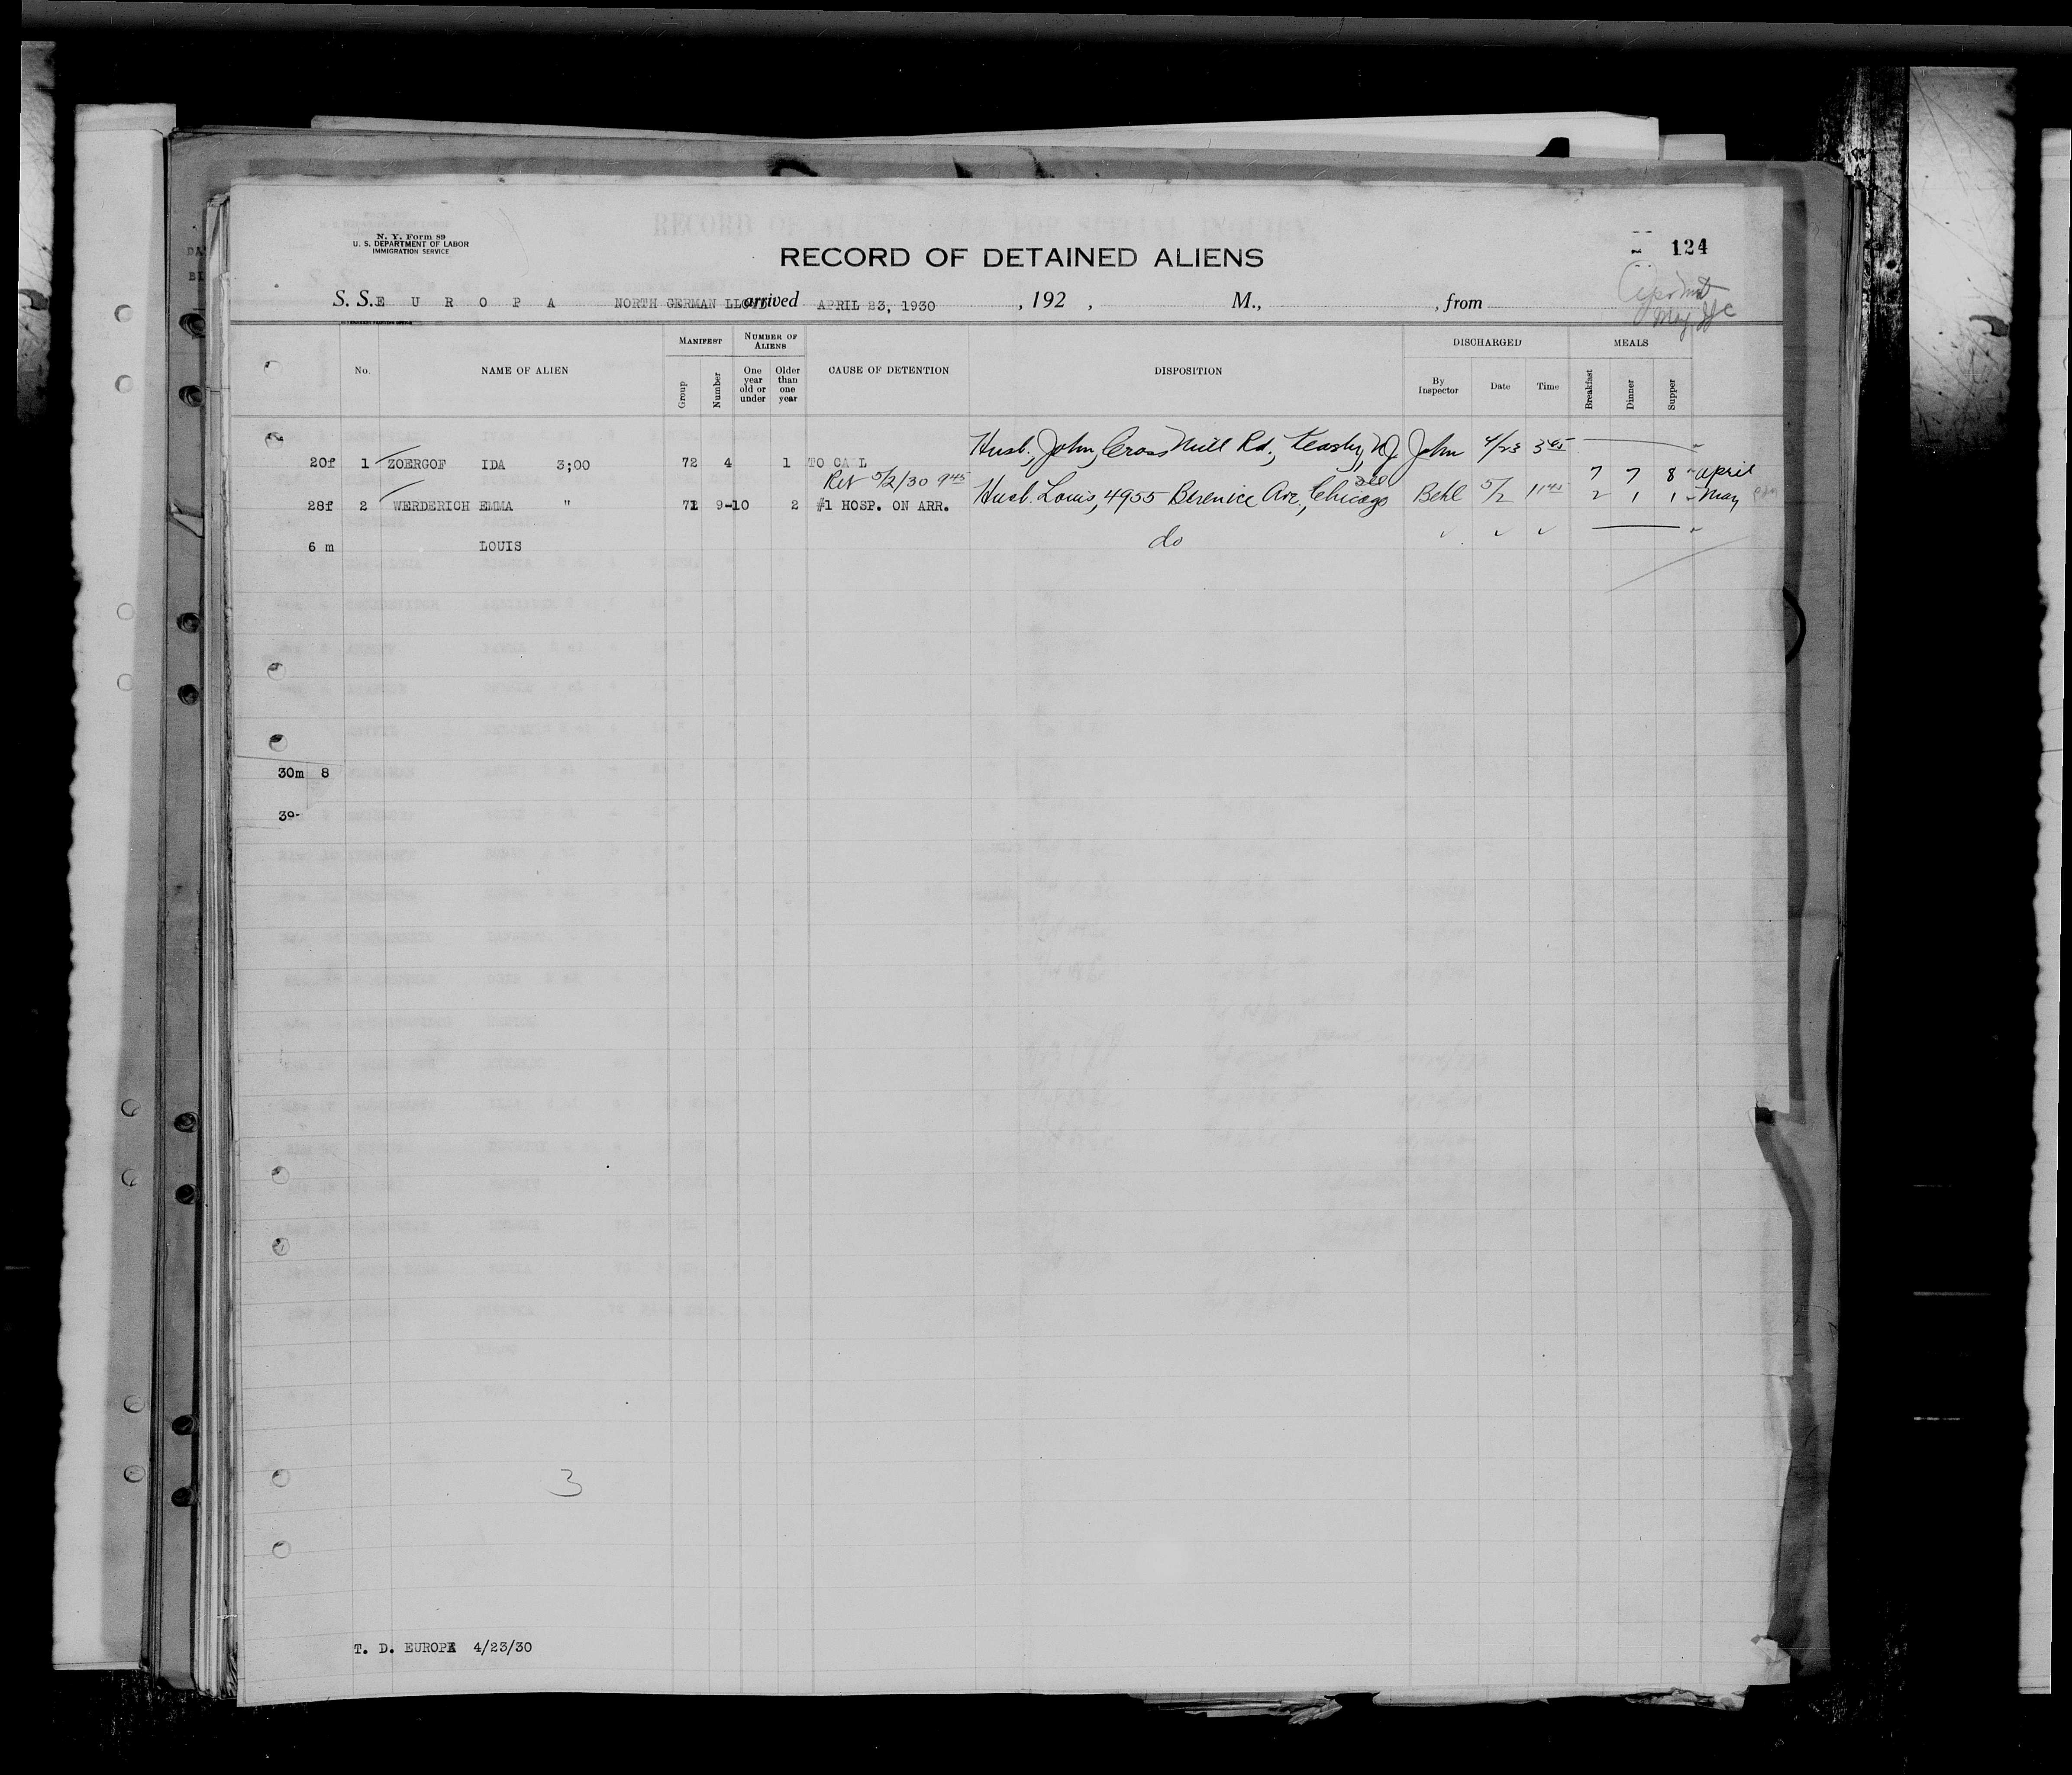 N. Y. Form 89
U. S. DEPARTMENT OF LABOR
IMMIGRATION SERVICE
RECORD OF DETAINED ALIENS
124
S. S. E U R O P A NORTH GERMAN LLOYD arrived APRIL 23, 1930 , 192 , M., , from
May
No. NAME OF ALIEN MANIFEST Group Number NUMBER OF ALIENS One year old or under Older than one year CAUSE OF DETENTION DISPOSITION DISCHARGED By Inspector Date Time MEALS Breakfast Dinner Supper
Husb., John, Cross Mill Rd., Keasby, N.J. John 4/23 3 05
20f 1 ZOERGOF IDA 3;00 72 4 1 TO CALL
5/2/30 9 45 7 7 8 - April
28f 2 WERDERICH EMMA " 71 9-10 2 #1 HOSP. ON ARR. Husb. Louis, 4955 Berenice Ave., Chicago Ill Behl 5/2 11 45 2 1 1 - May
6 m LOUIS do
30m 8
39-
3
T. D. EUROPA 4/23/30